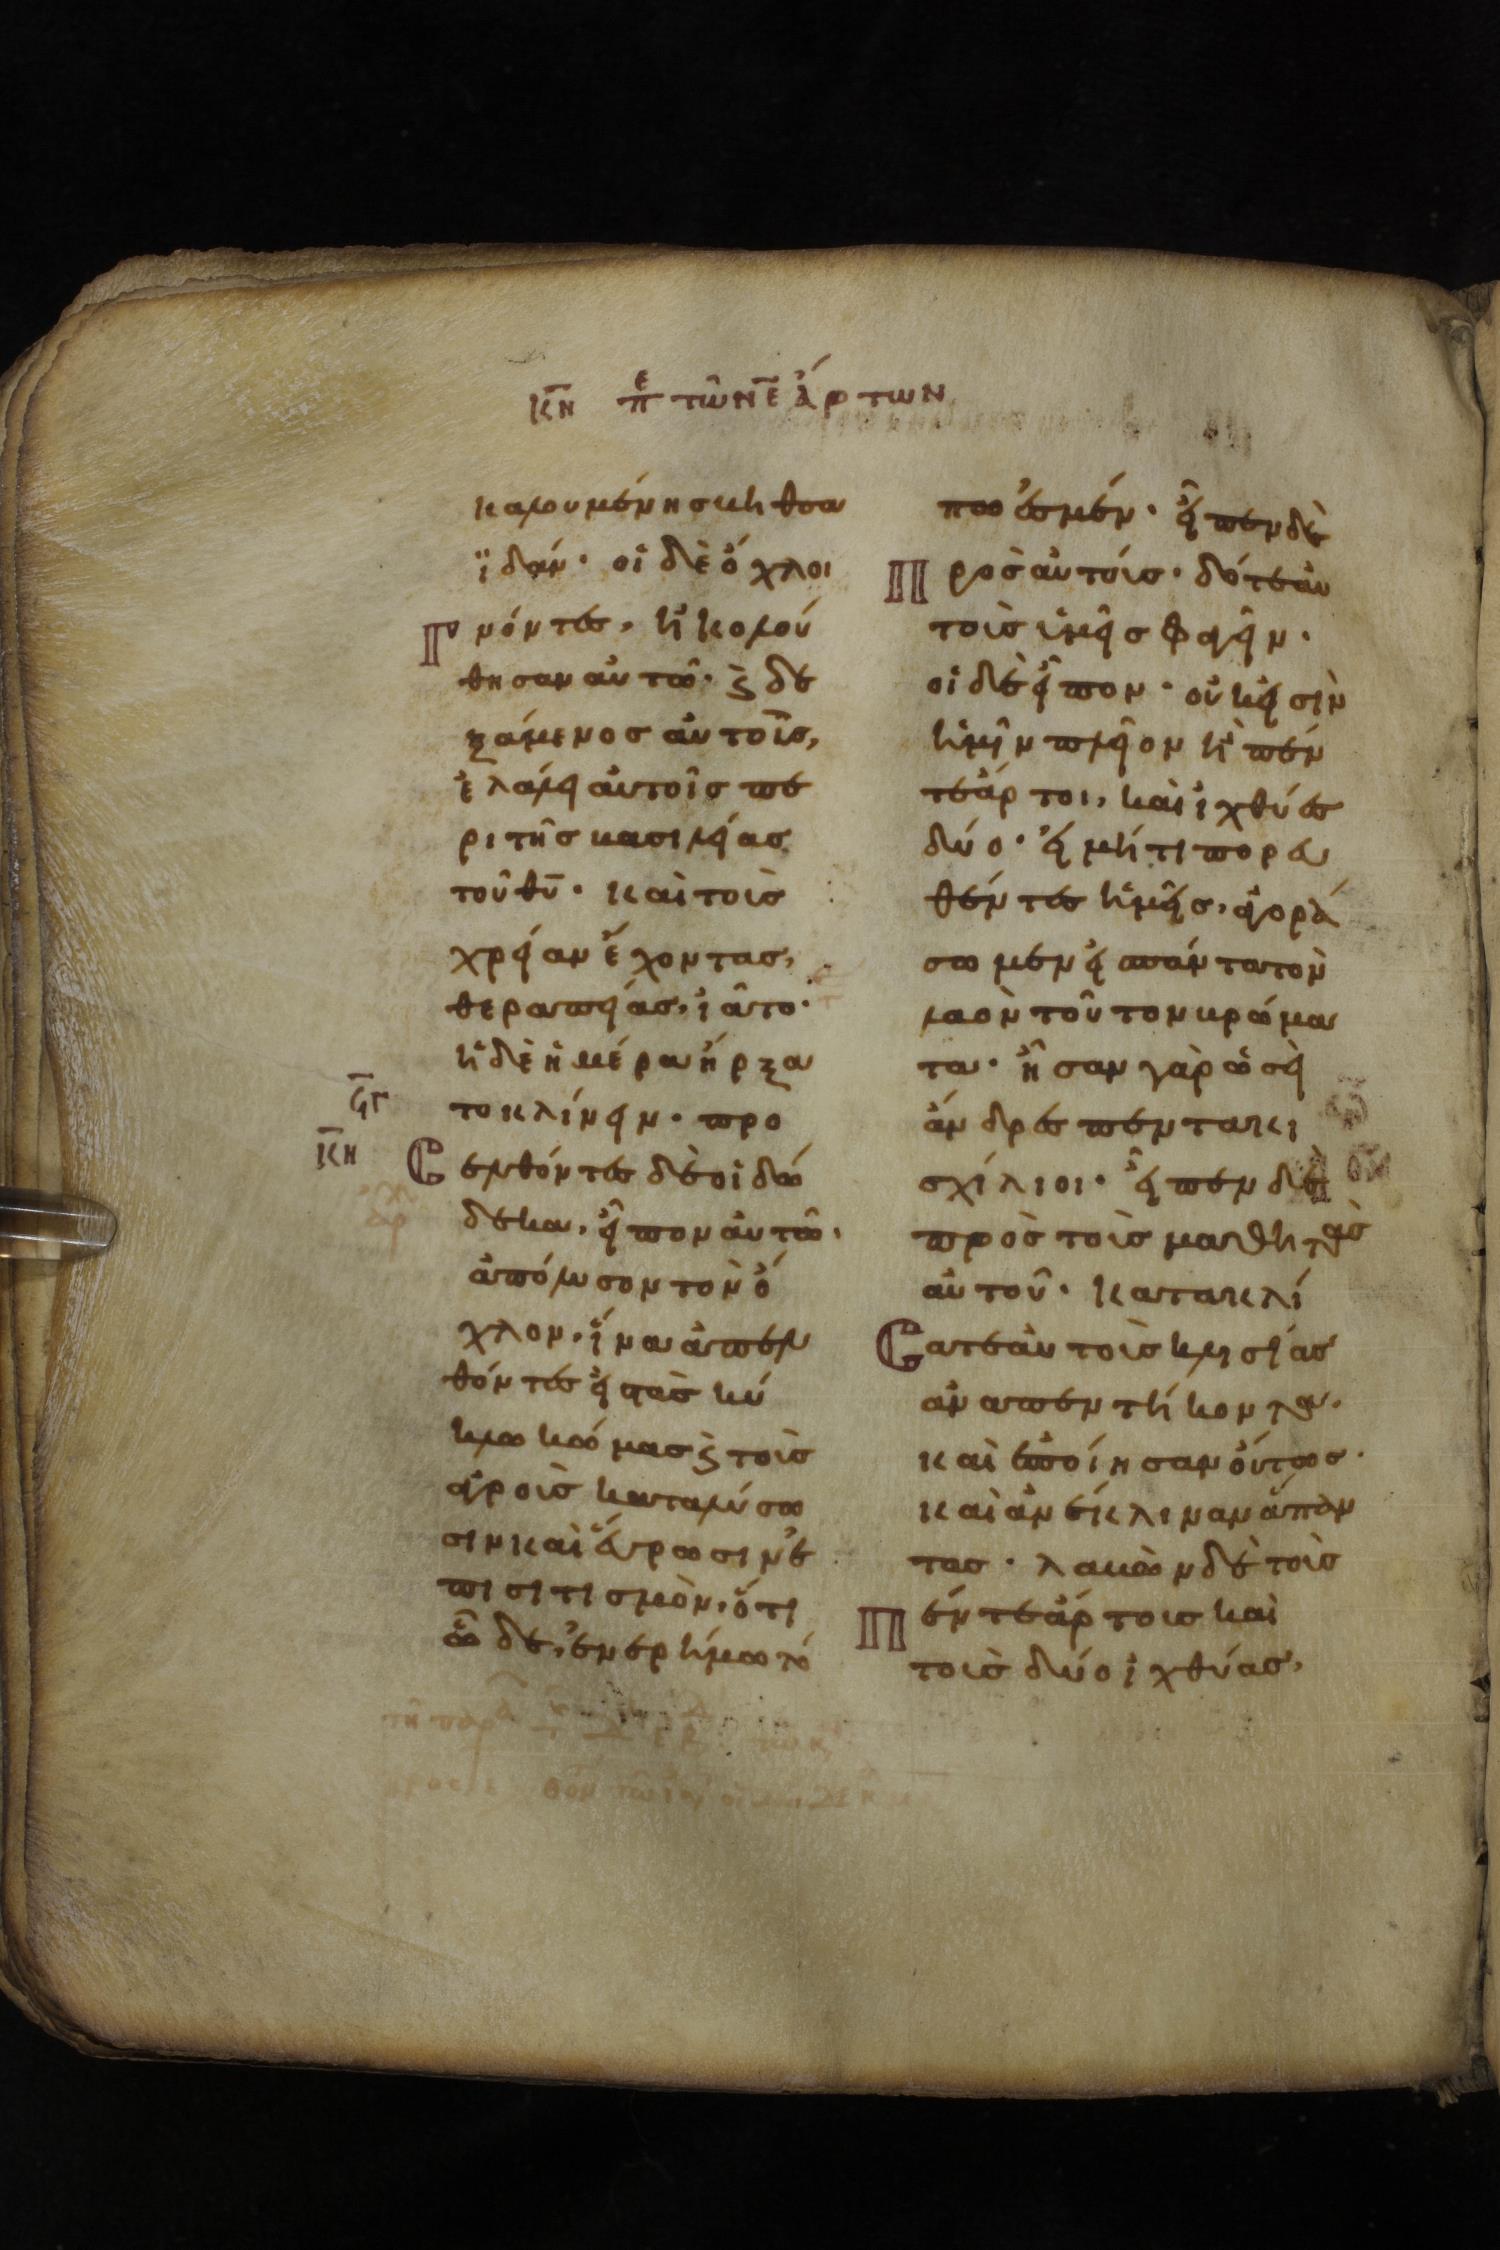 κη πε τῶν ε ἄρτων
καλουμένησ βηθσα
ϊδάν· οἱ δὲ ὄχλοι
Γνόντες, ἠκολού
θησαν αὐτῶ· ϗ δε
ξάμενοσ αὐτοῖσ,
ἐλάλει αὐτοῖσ πε
ρι τῆσ βασιλείασ
τοῦ θυ· καὶ τοὺσ
χρείαν ἔχοντασ,
θεραπείασ, ἰᾶτο·
ἡ δὲ ἡμέρα ἤρξα
ϟγ
το κλίνειν· προ
κη
Σελθόντες δὲ οἱ δώ
δεκα, εἶπον αὐτῶ·
ἀπόλυσον τὸν ὄ
χλον, ἵνα ἀπελ
θόντες εἰς τὰσ κύ
κλω κώμασ ϗ τοὺσ
ἀγροὺσ καταλύσω
σιν καὶ εὕρωσιν ἐ
πισιτισμὸν, ὅτι
ὧδε, ἐν ερήμω τό
πω ἐσμέν· εἶπεν δὲ
Προὸσ αὐτούσ· δότε αὐ
τοῖσ ὑμεῖσ φαγεῖν·
οἱ δὲ εἶπον· οὐκ εἰσὶν
ἡμῖν πλεῖον ἢ πέν
τε ἄρτοι, καὶ ἰχθύεσ
δύο· εἰ μήτι πορευ
θέντες ἡμεῖσ, ἀγορά
σωμεν εἰσ πάντα τὸν
λαὸν τοῦτον βρώμα
τα· ἦσαν γὰρ ὡσεὶ
ἄνδρες πεντακι
σχίλιοι· εἶπεν δὲ
πρὸσ τοὺσ μαθητὰσ
αὐτοῦ· κατακλί
Σατε αὐτοὺσ κλισίασ
ἀνα πεντήκοντα·
καὶ ἐποίησαν οὕτωσ·
καὶ ἀνέκλιναν ἅπαν
τασ· λαβὼν δὲ τοὺσ
Πέντε ἄρτουσ καὶ
τοὺσ δύο ἰχθύασ,